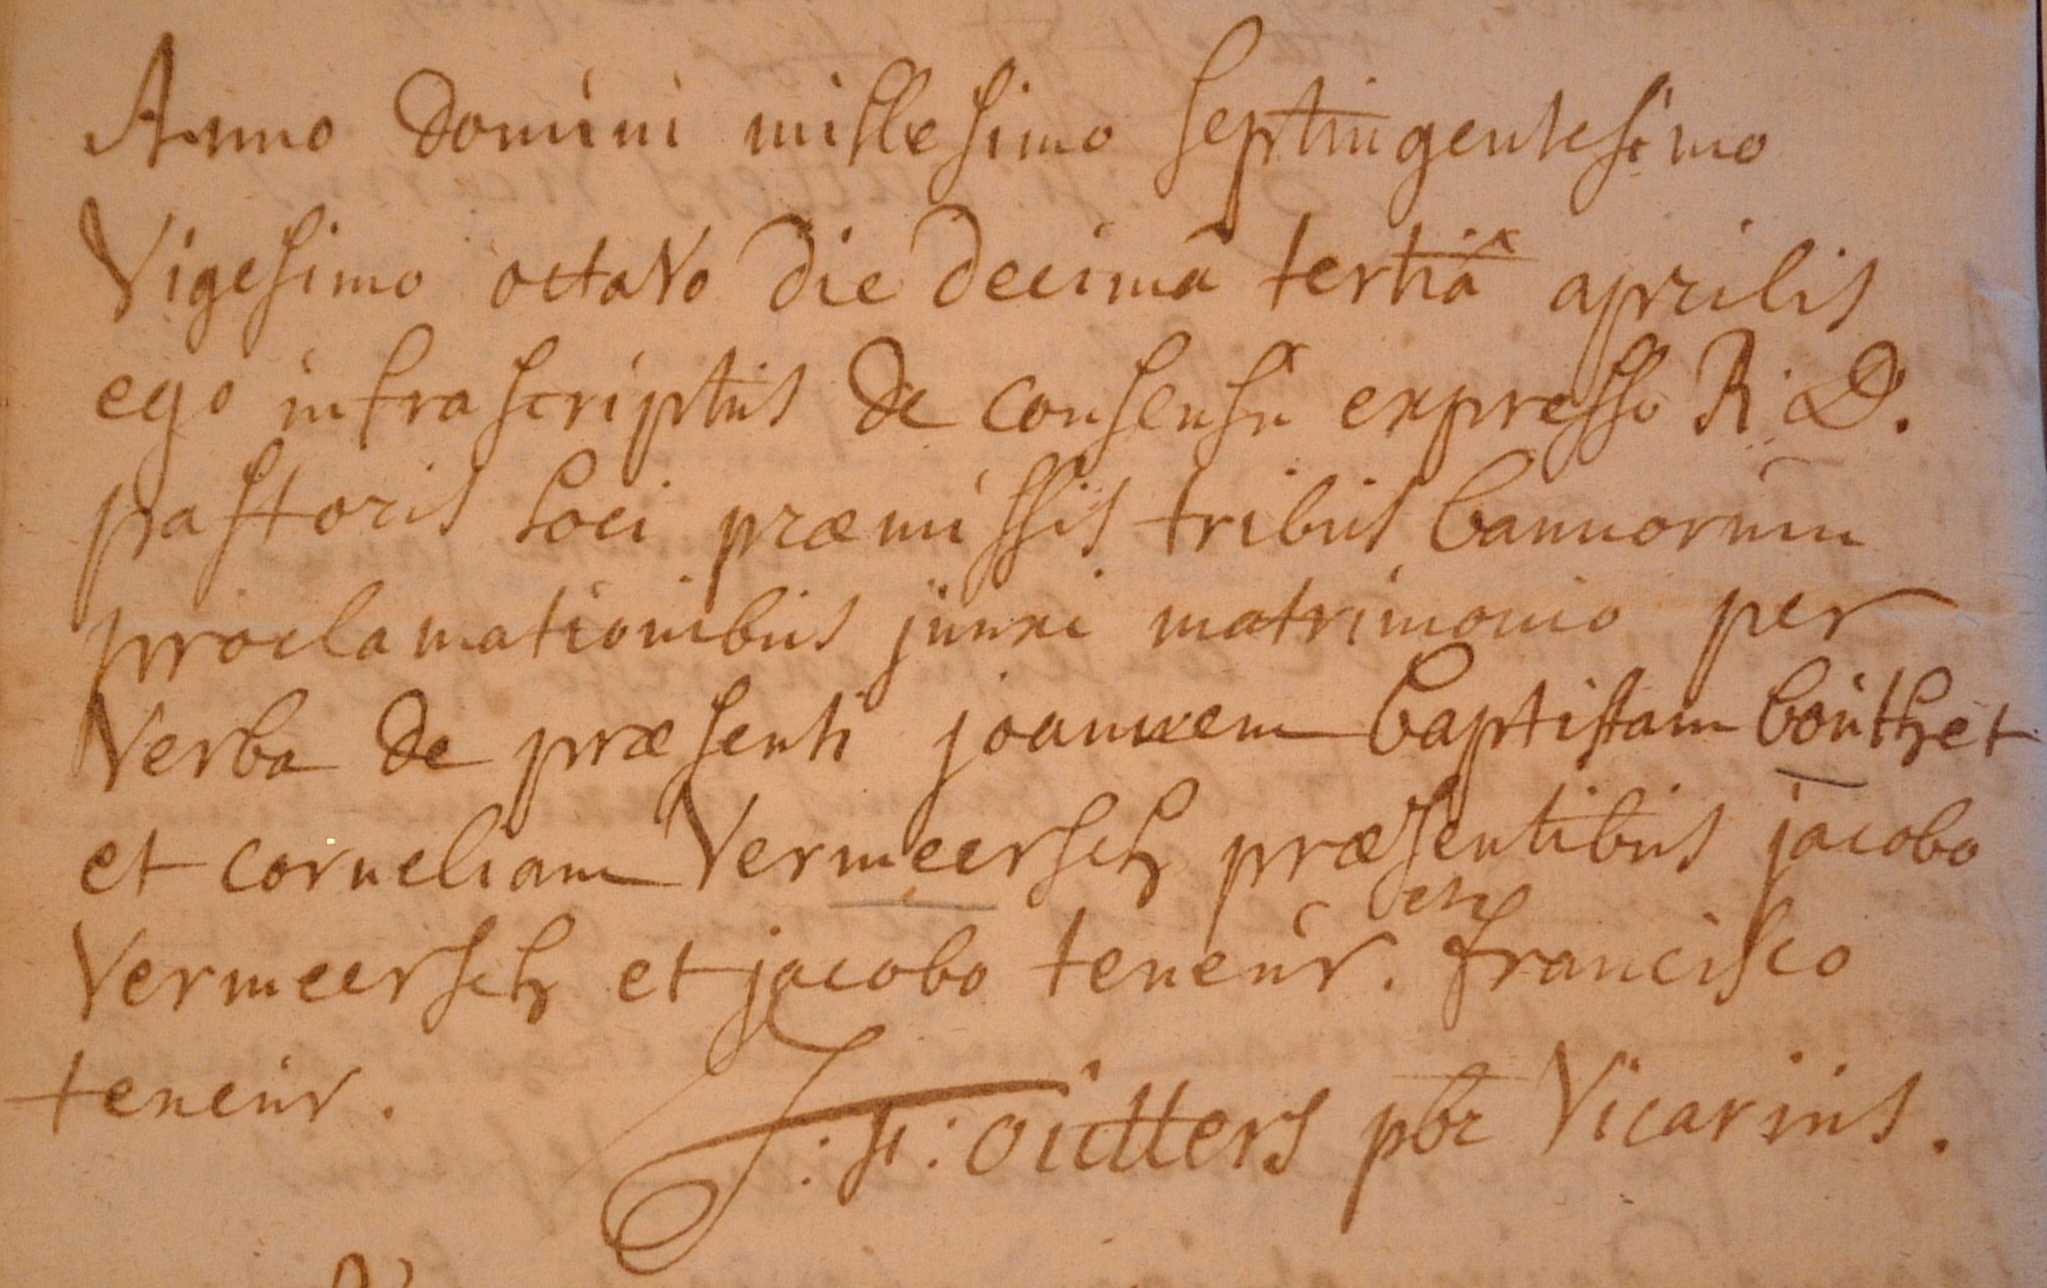 Anno Domini millesimo septingentesimo
Vigesimo octavo die decima tertia aprilis
ego infrascriptus de consensu expresso R. D.
pastoris loci præmissis tribus bannorum
proclamationibus junxi matrimonio per
Verba de præsenti joannem baptistam bouthet
et corneliam Vermeersch præsentibus jacobo
etc
Vermeersch et jacobo teneur. francisco
teneur.
J: F: outters pbr Vicarius.